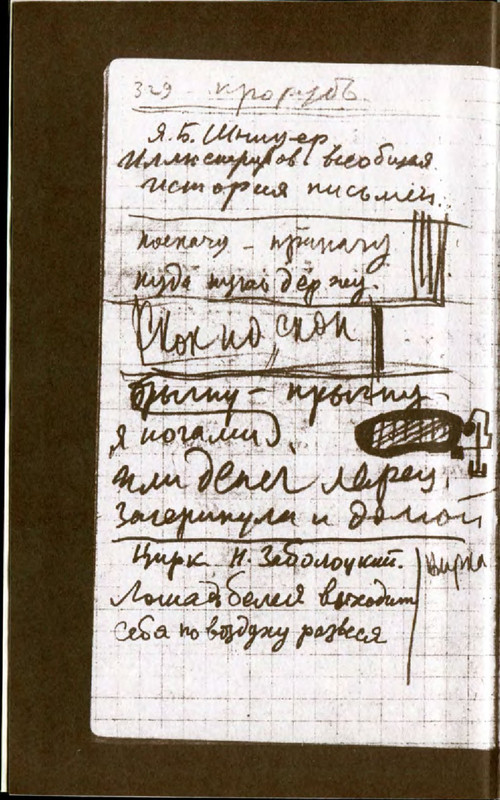 329 прорубь
Я.Б. Шницер
Иллюстриров. всеобщая
история письмен.
поскачу – прискачу
куда нужно держу.
Скок по скок
брыкну – прыгну
я ногами
или денег ларец
Зачерпнула и домой
Цирк Н. Заболоцкий.
цирка
Лошадь белая выходит
себя по воздуху развеся